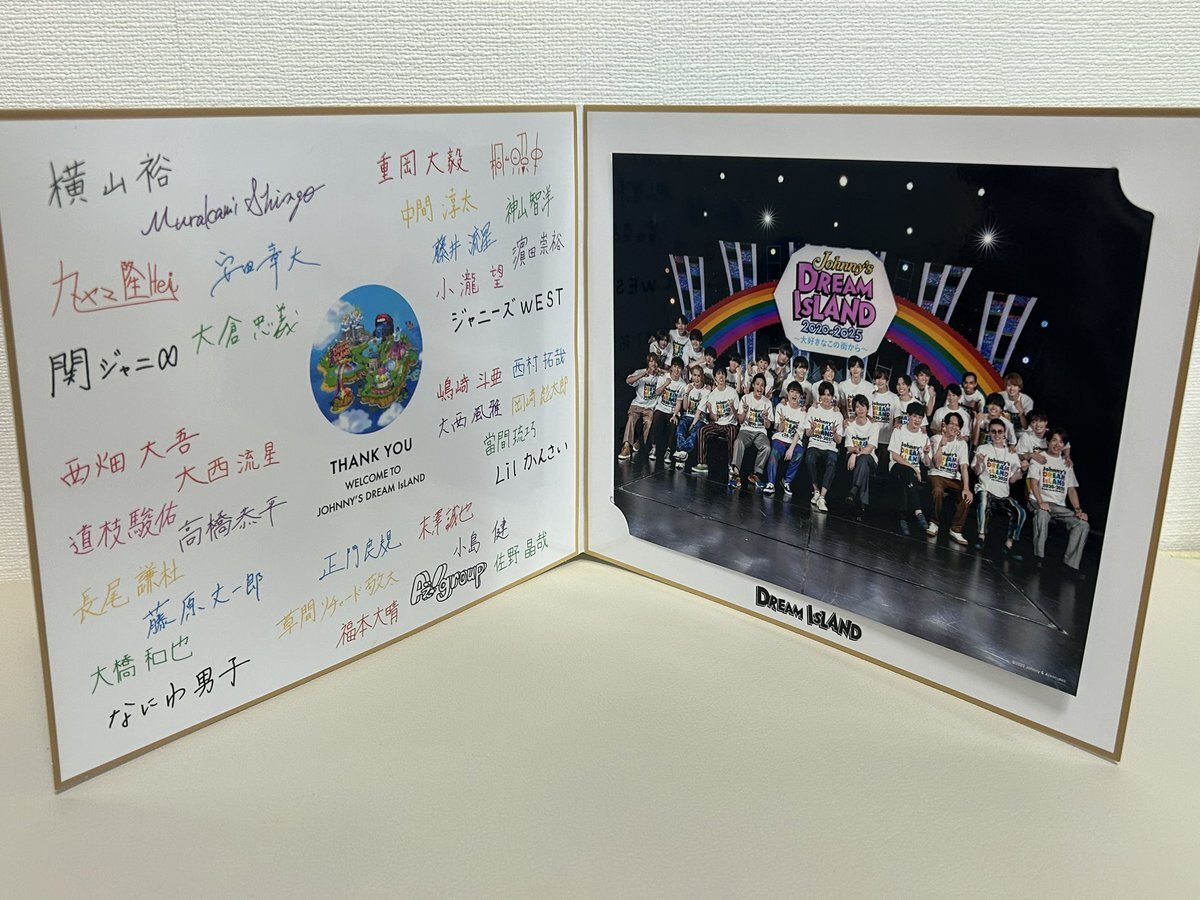 横山裕
Murakami Shingo
丸山隆Hei
安田章大
大倉忠義
関ジャニ∞
重岡大毅
桐山照史
中間淳太
神山智洋
藤井流星
濵田崇裕
小瀧望
ジャニーズWEST
THANK YOU
WELCOME TO
JOHNNY'S DREAM IsLAND
嶋﨑斗亜
西村拓哉
大西風雅
岡﨑彪太郎
當間琉巧
Lilかんさい
西畑大吾
大西流星
道枝駿佑
高橋恭平
長尾謙杜
藤原丈一郎
大橋和也
なにわ男子
正門良規
末澤誠也
草間リチャード敬太
小島健
福本大晴
Aぇ!group
佐野晶哉
Johnny's
DREAM
IsLAND
2020→2025
〜大好きなこの街から〜
DREAM IsLAND